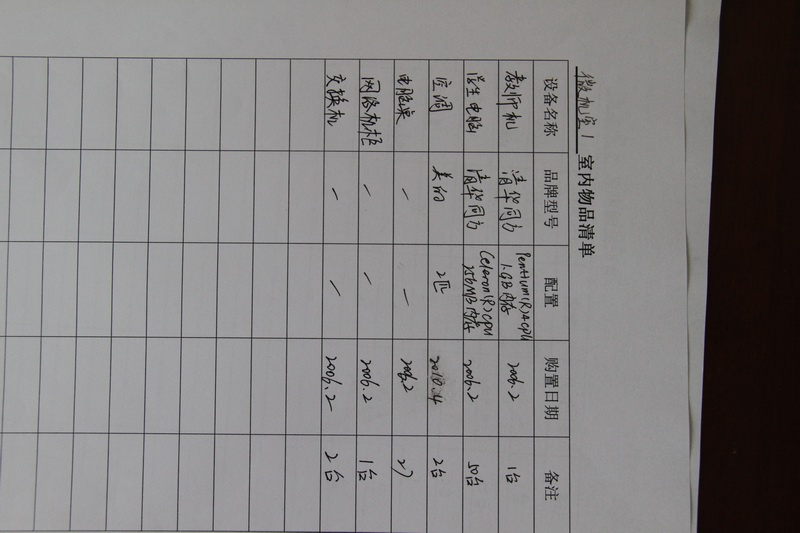 微机室1 室内物品清单
设备名称 品牌型号 配置 购置日期 备注
教师机 清华同方 Pentium(R)4CPU 1GB内存 2006.2 1台
学生电脑 清华同方 Celeron(R)CPU 256MB内存 2006.2 50台
空调 美的 2匹 2010.4 2台
电脑桌 — — 2006.2
网络机柜 — — 2006.2 1台
交换机 — — 2006.2 2台